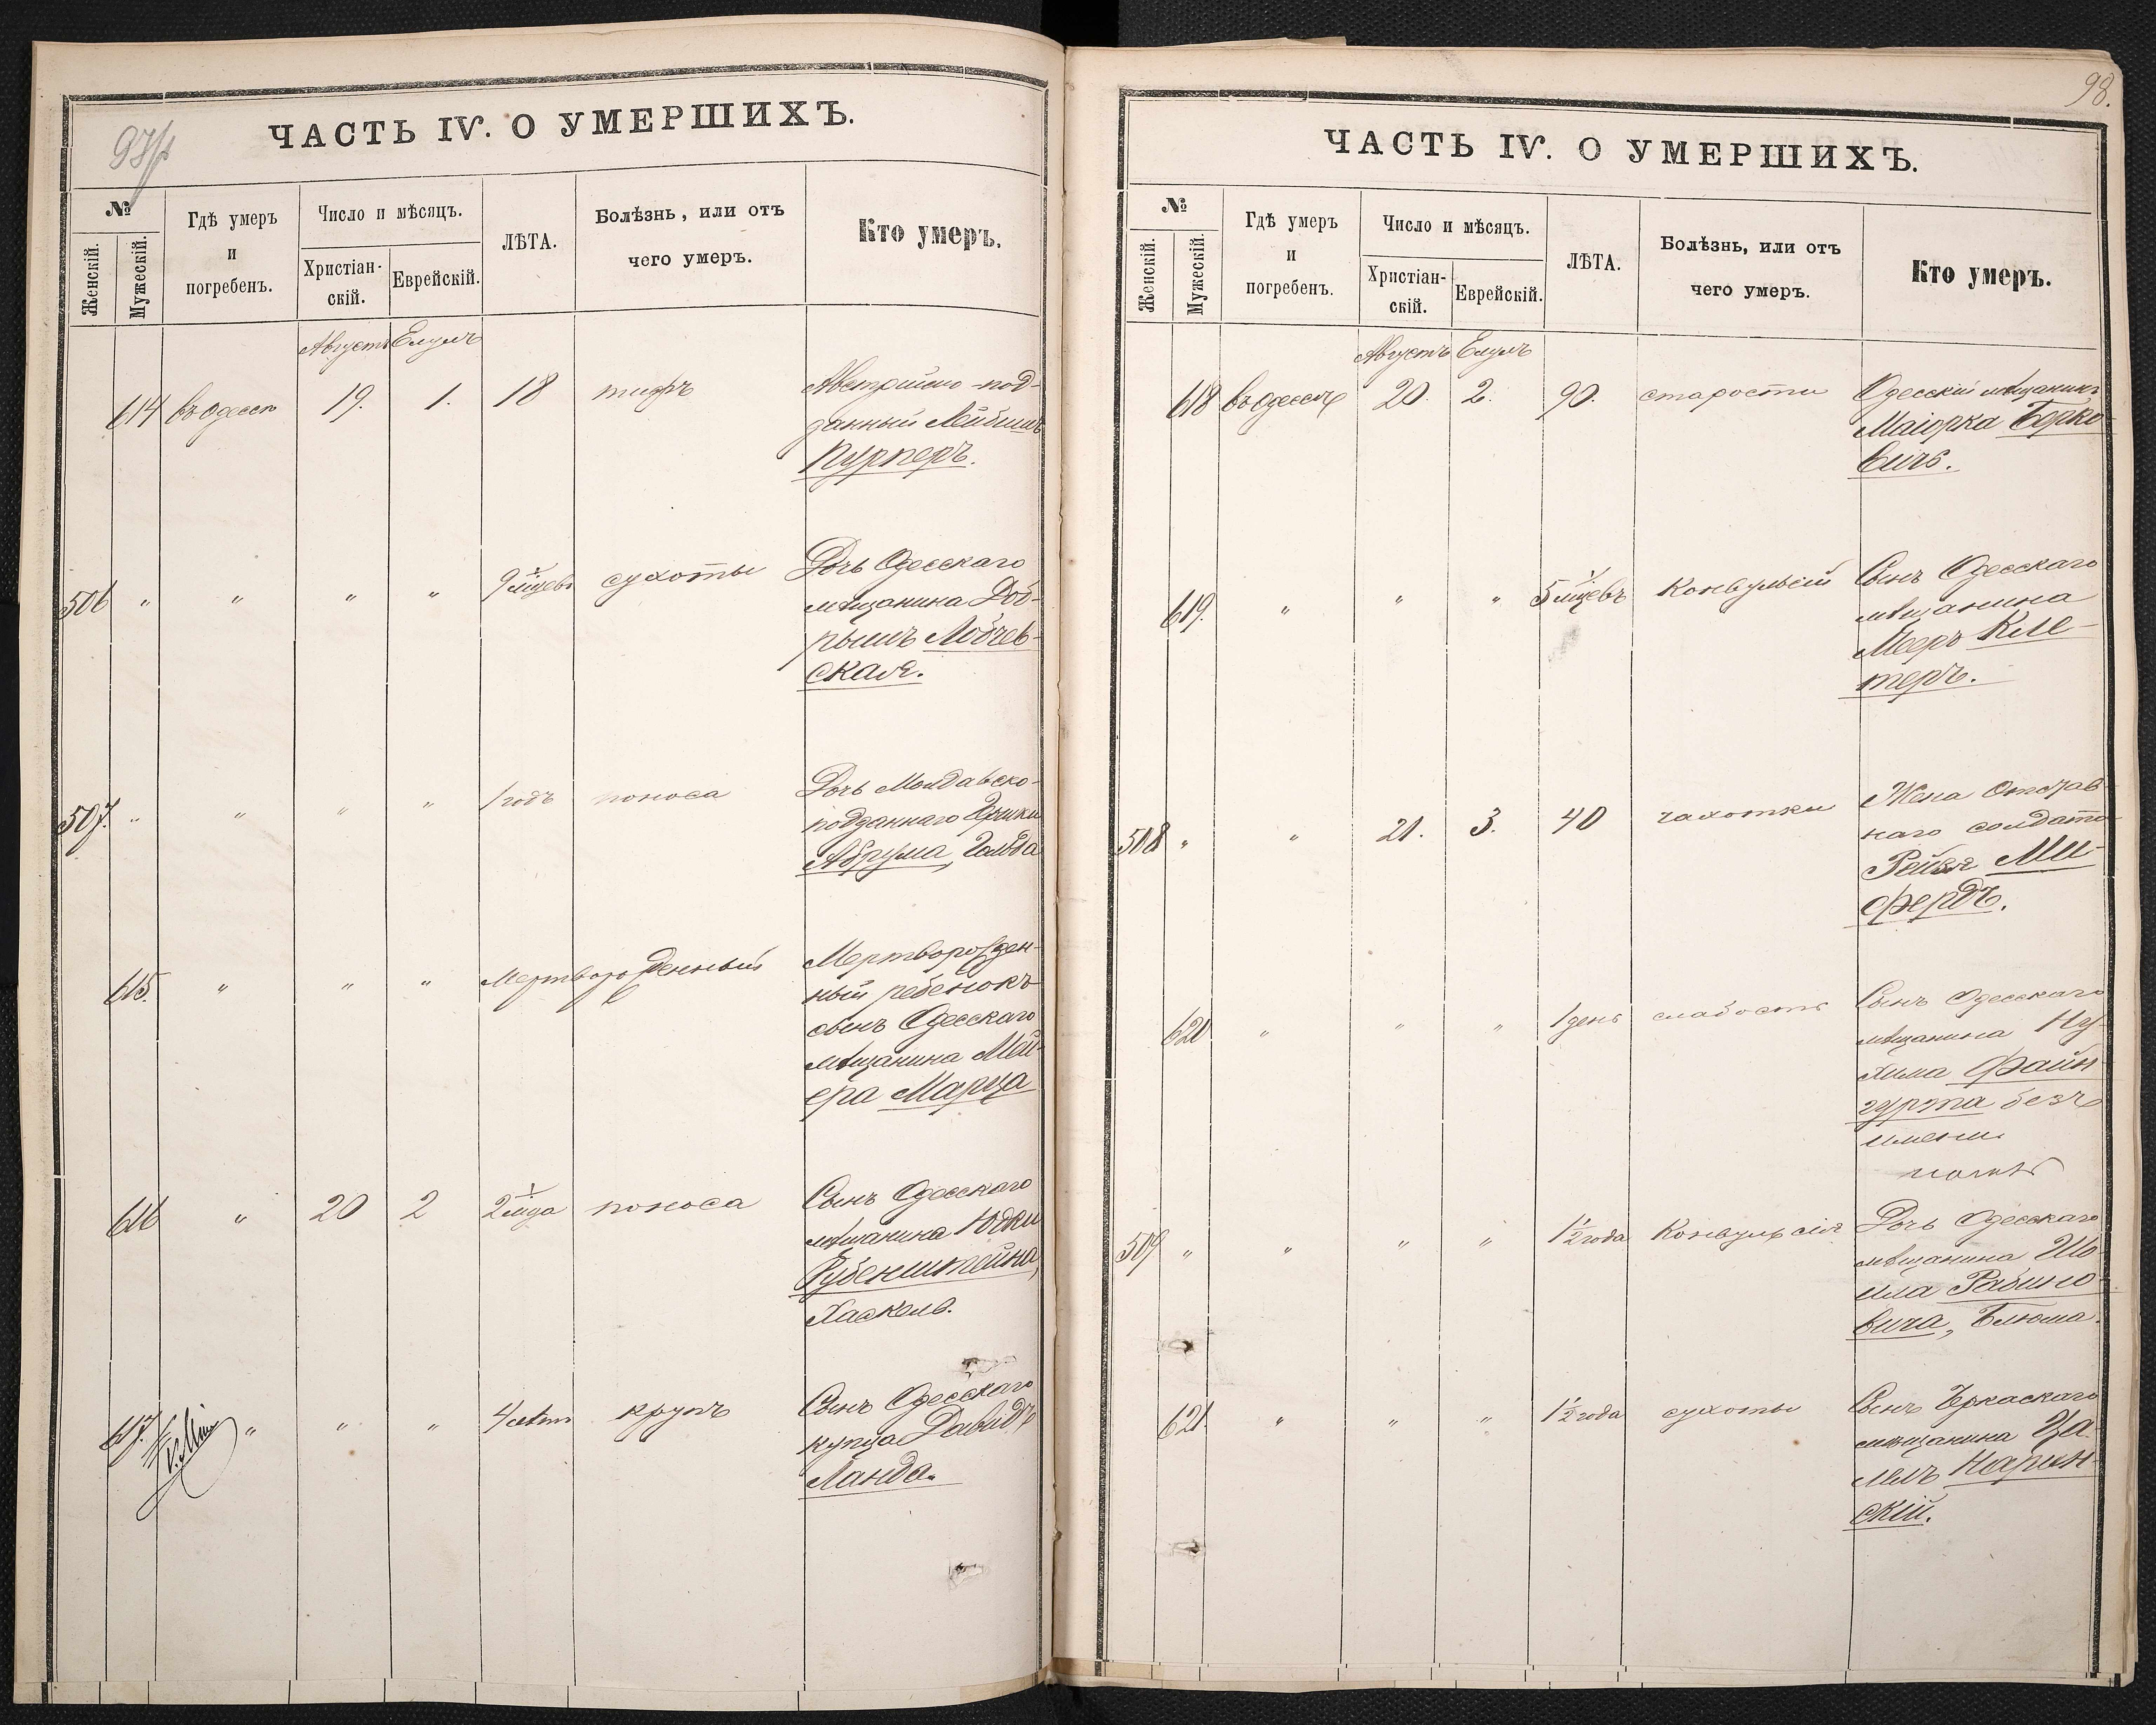 ЧАСТЬ IV. О УМЕРШИХЪ.
№
Женскій.
Мужескій.
Гдѣ умеръ
и
погребенъ.
Число и мѣсяцъ.
Христіан-
скій.
Еврейскій.
ЛѢТА.
Болѣзнь, или отъ
чего умеръ.
Кто умеръ.
Августъ Елулъ
614 въ Одессѣ 19. 1. 18 тифъ Австрійско-под-
данный Лейбишъ
Курперъ.
506 " " " " 9 м-цевъ сухоты Дочь Одесскаго
мѣщанина Доб-
рышъ Лобчев-
ская.
507. " " " " 1 годъ поноса Дочь Молдавско-
подданнаго Гершки
Абрума, Гольда
615. " " " Мертворожденный Мертворожден-
ный ребенокъ
сынъ Одесскаго
мѣщанина Мей-
ера Марца
616 " 20 2 2 м-ца поноса Сынъ Одесскаго
мѣщанина Юдки
Рубенштейна,
Хаскель.
617. " " " 4 лѣтъ крупъ Сынъ Одесскаго
купца Давидъ
Ланда.
98.
ЧАСТЬ IV. О УМЕРШИХЪ.
№
Женскій.
Мужескій.
Гдѣ умеръ
и
погребенъ.
Число и мѣсяцъ.
Христіан-
скій.
Еврейскій.
ЛѢТА.
Болѣзнь, или отъ
чего умеръ.
Кто умеръ.
Августъ Елулъ
618 въ Одессѣ 20. 2. 90. старости Одесскій мѣщанинъ
Маіорка Берко-
вичъ.
619. " " " 5 м-цевъ Конвульсій Сынъ Одесскаго
мѣщанина
Мееръ Кле-
теръ.
508 " " 21. 3. 40 чахотки Жена Отстав-
наго солдата
Рейзя Ми-
фердъ.
620 " " " 1 день слабость Сынъ Одесскаго
мѣщанина Ну-
хима Файн-
гурта безъ
имени
509 " " " " 1½ года Конвульсія Дочь Одесскаго
мѣщанина Шо-
ила Рабино-
вича, Блюма.
621. " " " 1½ года сухоты Сынъ Черкаскаго
мѣщанина Ца-
лелъ Нарин-
скій.